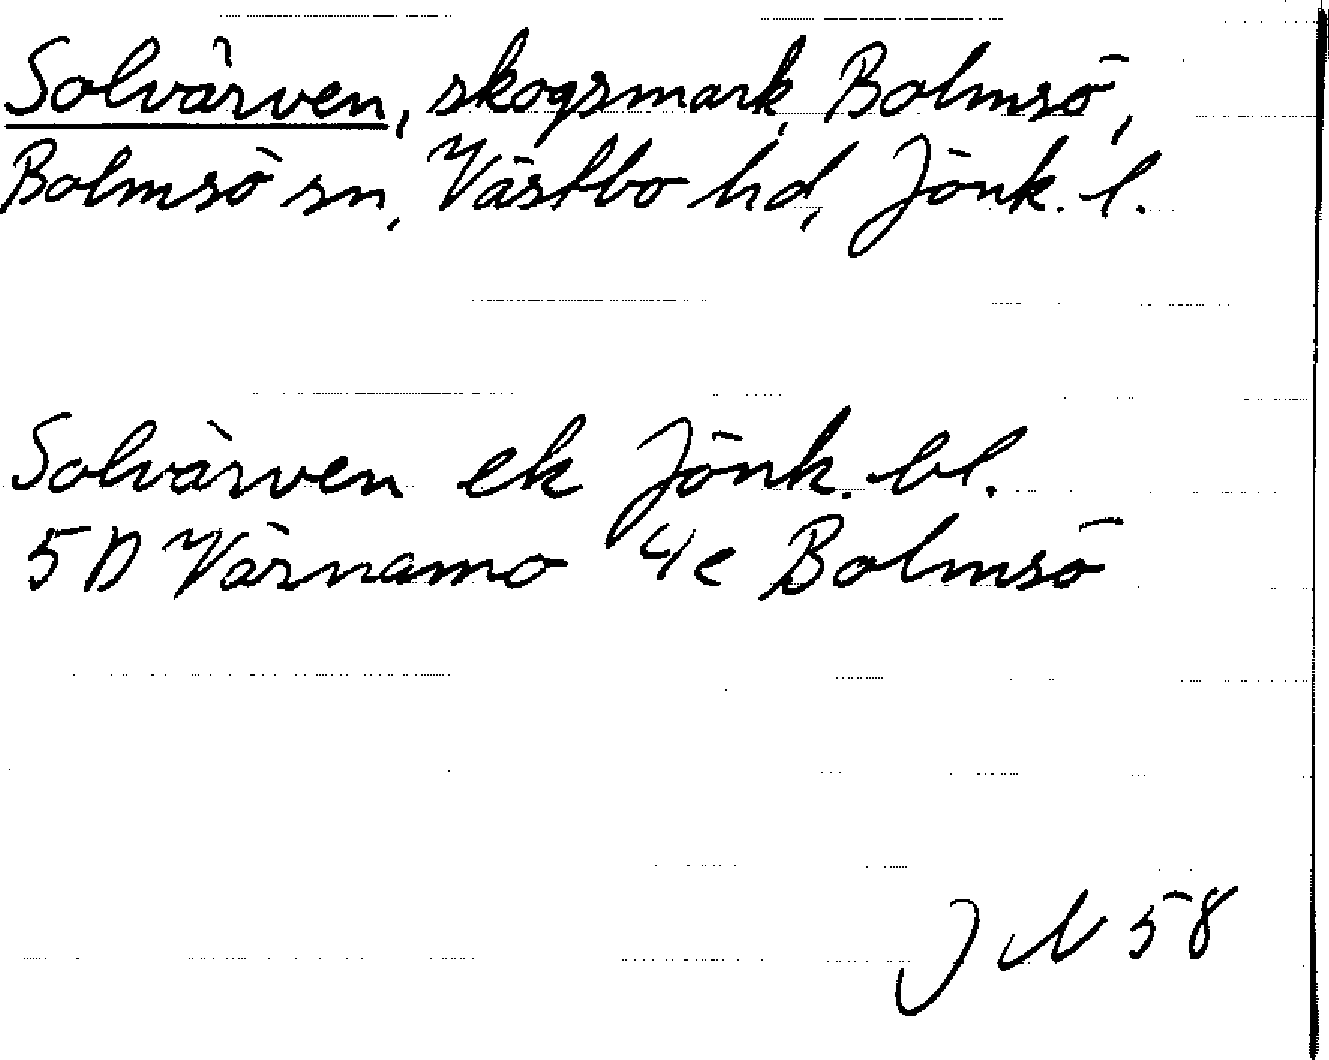 Solvärven, skogsmark, Bolmsö,
Bolmsö sn, Västbo hd, Jönk. l.
Solvärven ek Jönk. bl.
5D Värnamo 4e Bolmsö
JN 58